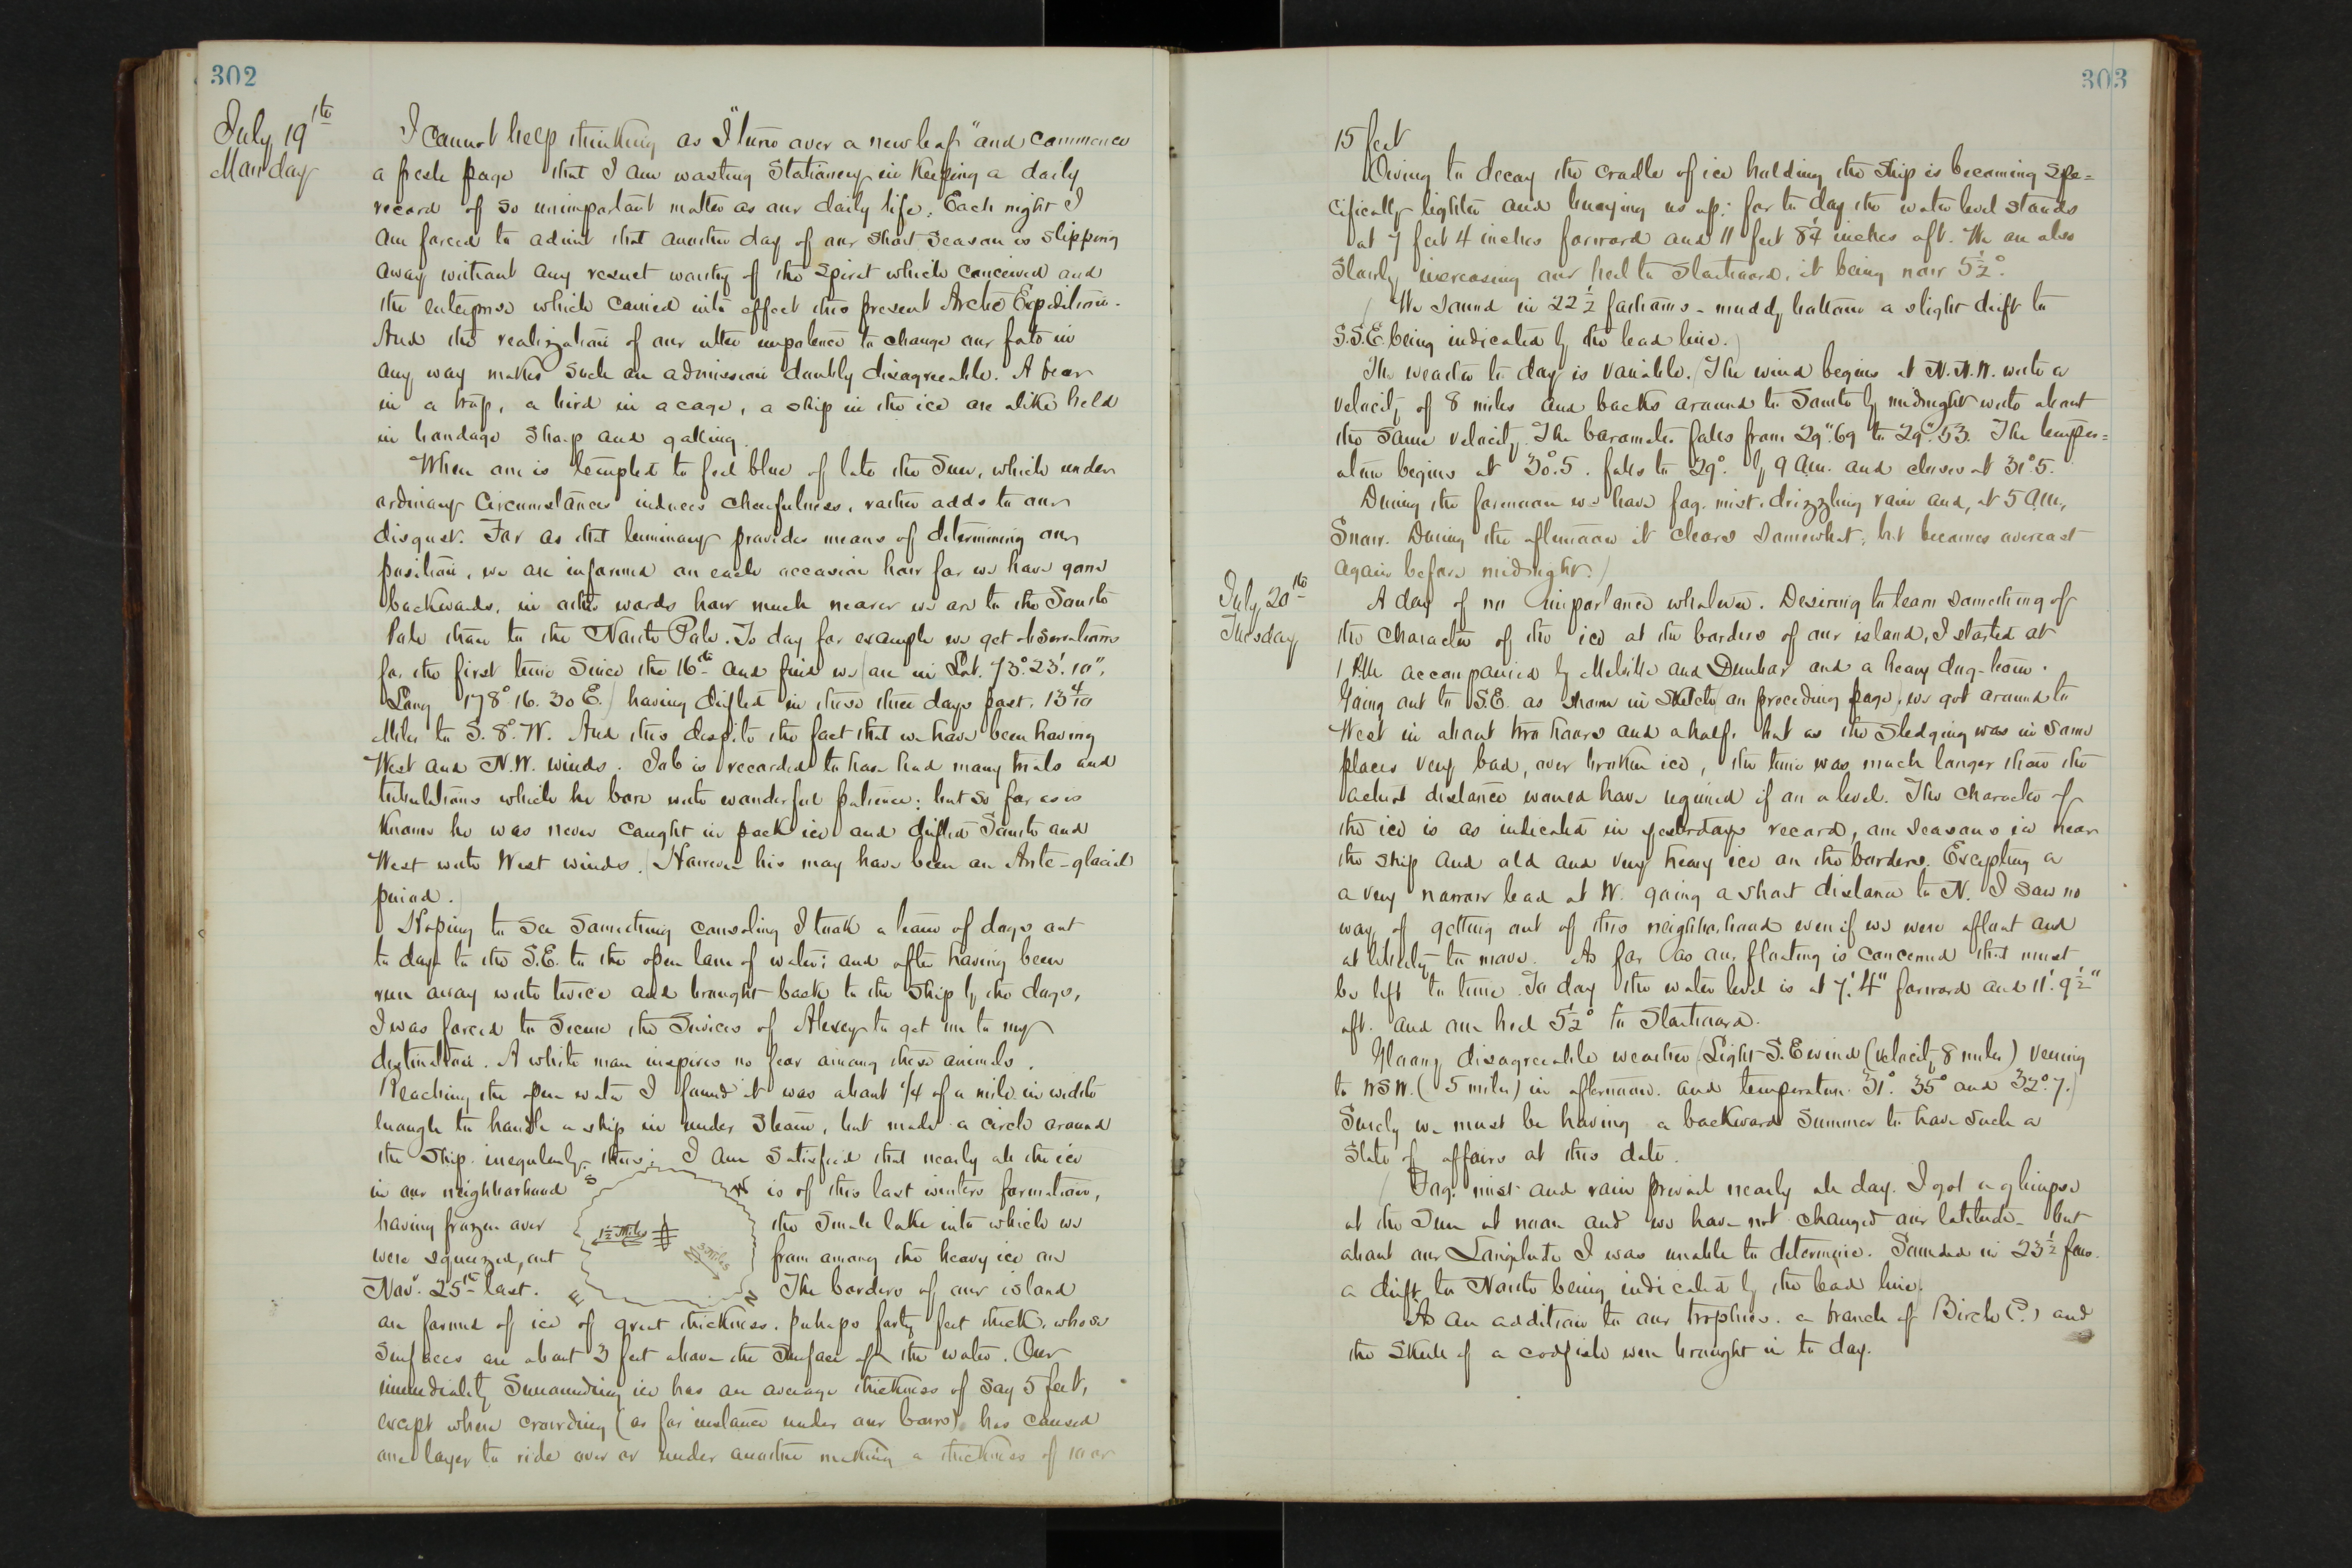 302
July 19th
Monday
I cannot help thinking as I "turn over a new leaf" and commence
a fresh page that I am wasting stationery in keeping a daily
record of so unimportant matter as our daily life. Each night I
am forced to admit that another day of our short season is slipping
away without any result worthy of the spirit which conceived and
the enterprise which carried into effect this present Arctic Expedition.
And the realization of our utter impotence to change our fate in
any way makes such an admission doubly disagreeable. A bear
in a trap, a bird in a cage, a ship in the ice are alike held
in bondage sharp and galling.
When one is tempted to feel blue of late the Sun, which under
ordinary circumstances induces cheerfulness, rather adds to our
disgust. For as that luminary provides means of determining our
position, we are informed on each occasion how far we have gone
backwards, in other words how much nearer we are to the South
Pole than to the North Pole. To day for example we get observations
for the first time since the 16th and find we (are in Lat. 73° 23' 10",
Long 178° 16. 30 E.) having drifted in these three days past, 13 4/10
Miles to S. 8° W. And this despite the fact that we have been having
West and N.W. winds. Job is recorded to have had many trials and
tribulations which he bore with wonderful patience: but so far as is
known he was never caught in pack ice and drifted South and
West with West winds. (However his may have been an Ante-glacial
period.)
Hoping to see something consoling I took a team of dogs out
to day to the S.E. to the open lane of water; and after having been
run away with twice and brought back to the ship by the dogs,
I was forced to secure the services of Alexey to get me to my
destination. A white man inspires no fear among these animals.
Reaching the open water I found it was about 1/4 of a mile in width
enough to handle a ship in under steam, but made a circle around
the ship irregularly, thus; I am satisfied that nearly all the ice
in our neighborhood S W is of this last winters formation,
having frozen over 1 1/2 miles the small lake into which we
were squeezed, out 3 miles from among the heavy ice on
Nov. 25th last. E N The borders of our island
are formed of ice of great thickness, perhaps forty feet thick, whose
surfaces are about 3 feet above the surface of the water. Our
immediately surrounding ice has an average thickness of say 5 feet,
except where crowding (as for instance under our bows) has caused
one layer to ride over or under another making a thickness of 10 or
303
15 feet
Owing to decay the cradle of ice holding the ship is becoming spe=
cifically lighter and buoying us up; for to day the water level stands
at 7 feet 4 inches forward and 11 feet 8 1/4 inches aft. We are also
slowly increasing our heel to starboard, it being now 5 1/2°.
(We sound in 22 1/2 fathoms - muddy bottom a slight drift to
S.S.E. being indicated by the lead line.)
The weather to day is variable. (The wind begins at N.N.W. with a
velocity of 8 miles and backs around to South by midnight with about
the same velocity. The barometer falls from 29".69 to 29".53. The temper=
ature begins at 30°.5. falls to 29°. by 9 a.m. and closes at 31°5.
During the forenoon we have fog, mist, drizzling rain and, at 5 a.m.,
Snow. During the afternoon it clears somewhat, but becomes overcast
again before midnight.)
July 20th
Tuesday
A day of no importance whatever. Desiring to learn something of
the character of the ice at the borders of our island, I started at
1 P.M. accompanied by Melville and Dunbar and a heavy dog-team.
Going out to S.E. as shown in sketch on preceding page, we got around to
West in about two hours and a half, but as the sledging was in some
places very bad, over broken ice, the time was much longer than the
actual distance would have required if on a level. The character of
the ice is as indicated in yesterdays record, one seasons ice near
the ship and old and very heavy ice on the borders. Excepting a
a very narrow lead at W. going a short distance to N. I saw no
way of getting out of this neighborhood even if we were afloat and
at liberty to move. As far as our floating is concerned that must
be left to time. To day the water level is at 7' 4" forward and 11' 9 1/2"
aft. and our heel 5 1/2° to Starboard.
Gloomy disagreeable weather (Light S.E wind (velocity 8 miles) veering
to WSW. (5 miles) in afternoon. and temperature 31° 35° and 32°.7.)
Surely we must be having a backward summer to have such a
state of affairs at this date.
(Fog, mist and rain prevail nearly all day. I got a glimpse
at the Sun at noon and we have not changed our latitude - but
about our Longitude I was unable to determine. Sounded in 23 1/2 fms.
a drift to North being indicated by the lead line.)
As an addition to our trophies. a branch of Birch (?) and
the skull of a codfish were brought in to day.